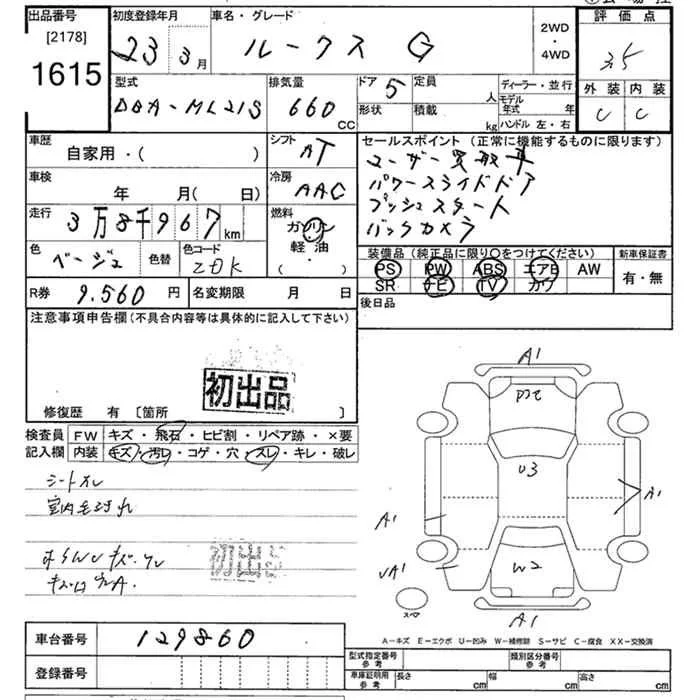 出品番号 初度登録年月 車名・グレード 評価点
[2178] 23年 3月 ルークス G 2WD・4WD 3.5
1615
型式 排気量 ドア 5 定員 人 ディーラー・並行 外装 内装
DBA-ML21S 660 CC 形状 積載 kg モデル年式 年 C C
ハンドル 左・右
車歴 シフト セールスポイント (正常に機能するものに限ります)
自家用・( ) AT ユーザー買取車
車検 冷房 パワースライドドア
年 月( 日) AAC プッシュスタート
走行 燃料 バックカメラ
3万8千967km ガソリン
色 色替 色コード 軽油 装備品 (純正品に限り○をつけてください) 新車保証書
ベージュ Z0K ( ・ ) PS PW ABS エアB AW 有・無
R券 9.560円 名変期限 月 日 SR ナビ TV カワ
注意事項申告欄(不具合内容等は具体的に記入して下さい) 後日品
初出品
修復歴 有 〔箇所 〕
検査員 FW キズ・飛石・ヒビ割・リペア跡・×要
記入欄 内装 キズ・汚レ・コゲ・穴・スレ・キレ・破レ
シートスレ
初出品
A1
U3
A1
A1
W2
A1
スペア
A-キズ E-エクボ U-凹み W-補修跡 S-サビ C-腐食 XX-交換済
車台番号 129860
登録番号
型式指定番号 参考 類別区分番号 参考
車庫証明用 参考 長さ cm 幅 cm 高さ cm